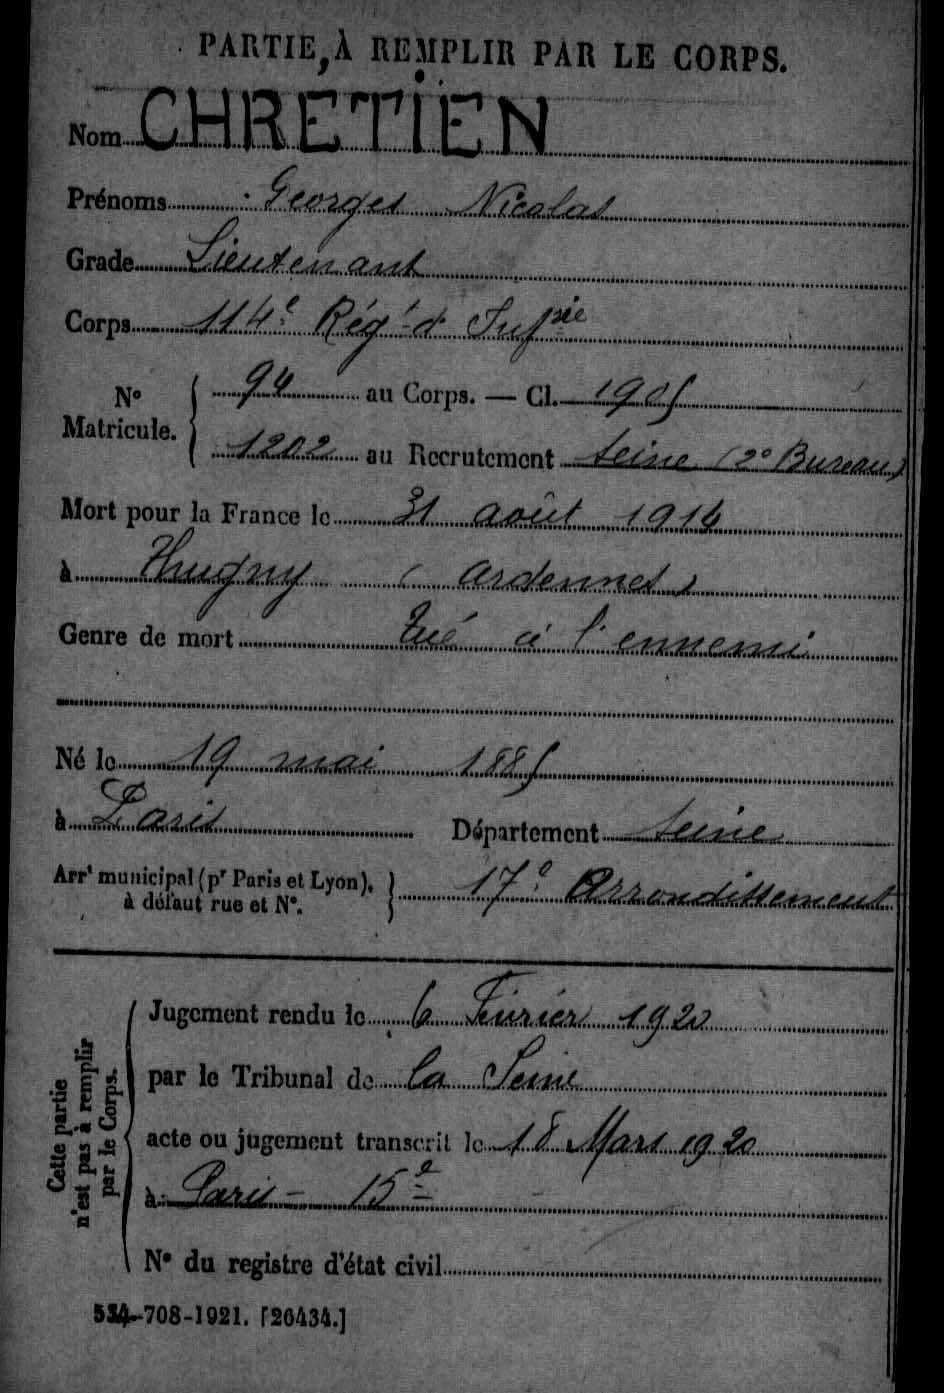 PARTIE, À REMPLIR PAR LE CORPS.
Nom CHRETIEN
Prénoms Georges Nicolas
Grade Lieutenant
Corps 114e Régt d' Infie
N° Matricule. { 94 au Corps. — Cl. 1905
1202 au Recrutement Seine (2e Bureau)
Mort pour la France le 31 août 1914
à Thugny (Ardennes)
Genre de mort Tué à l'ennemi
Né le 19 mai 1885
à Paris Département Seine
Arrt municipal (pr Paris et Lyon), à défaut rue et N°. } 17e Arrondissement
Cette partie n'est pas à remplir par le Corps.
Jugement rendu le 6 Février 1920
par le Tribunal de la Seine
acte ou jugement transcrit le 18 Mars 1920
à Paris - 15e
N° du registre d'état civil
534-708-1921. [26434.]